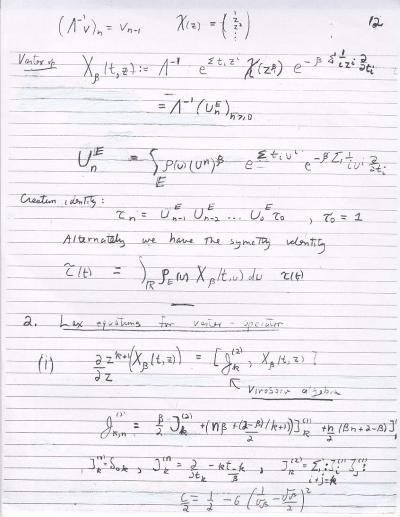 (Λ⁻¹v)ₙ = vₙ₋₁    χ(z) = (1 z z² ⋮)    12
Vertex op  X_β(t,z) := Λ⁻¹ e^{Σ tᵢ zⁱ} χ(z^β) e^{-β Σ 1/i z⁻ⁱ ∂/∂tᵢ}
= Λ⁻¹ (Uₙ^E)_{n≥0}
Uₙ^E = ∫_E ρ(u) (uⁿ)^β e^{Σ tᵢ uⁱ} e^{-β Σ 1/i u⁻ⁱ ∂/∂tᵢ}
Creation identity:
τₙ = U^E_{n-1} U^E_{n-2} ... U₀^E τ₀ , τ₀ = 1
Alternately we have the symetry identity
τ(t) = ∫_ℝ ρ_E(u) X_β(t,u) du τ(t)
2. Lax equations for vertex-operator
(1) ∂/∂z z^{k+1} (X_β(t,z)) = [J_k^{(2)}, X_β(t,z)]
Virasoro algebra
J_{k,n}^{(2)} = β/2 J_k^{(2)} + (nβ + (2-β)/2 (k+1)) J_k^{(1)} + n/2 (βn+2-β) J
J_k^{(0)} = δ_{0k} , J_k^{(1)} = ∂/∂t_k - k t_{-k}/β , J_k^{(2)} = Σ_{i+j=k} : J_i^{(1)} J_j^{(1)} :
c/2 = 1/2 - 6 (1/√β - √β/2)²